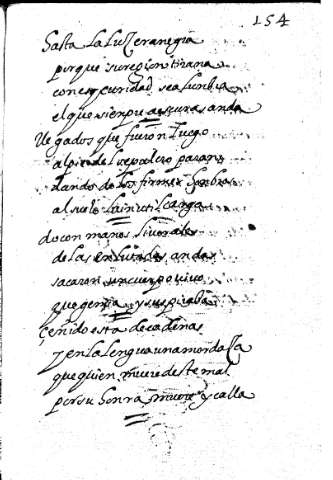 154
hasta la luz era negra
porque su region tirana
con escuridad sea lunbra
el que sienpre a escuras anda
llegados que fueron luego
al pie del sepulcro paran
dando de los firmes honbros
al suelo la inutil carga
do con manos
de las enlutadas andas
sacaron un cuerpo vivo
que gemia y suspiraba
çeñido esta de cadenas
y en la lengua una mordaça
que quien muere deste mal
por su honra muere y calla